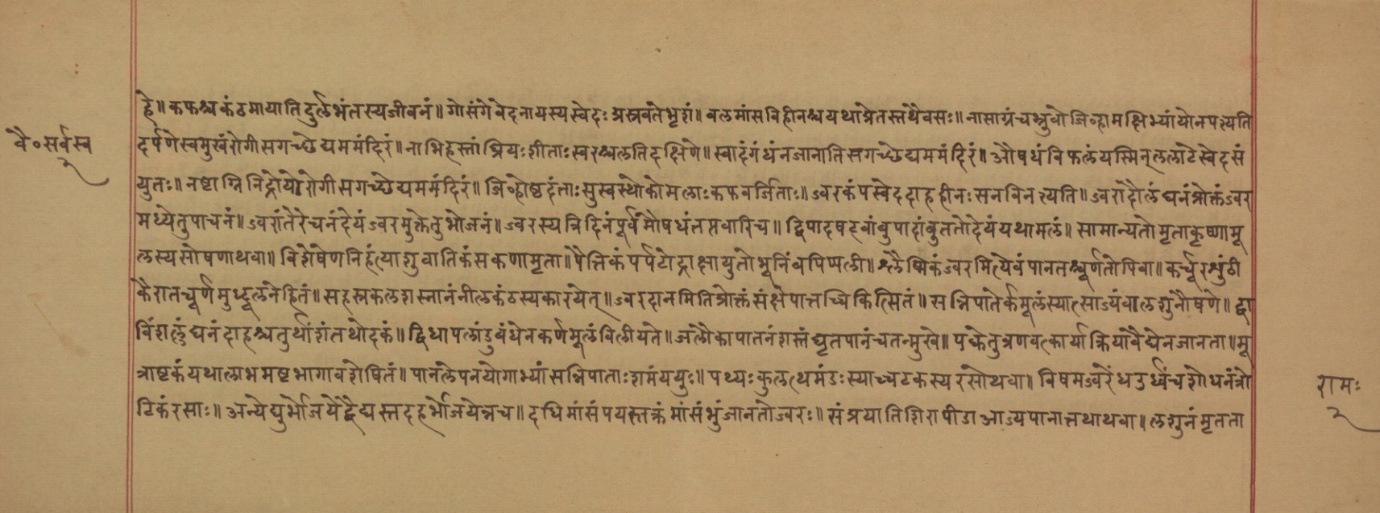 हे॥ कफश्च कंठमायाति दुर्लभं तस्य जीवनं॥ गोसंगे वेदना यस्य स्वेदः प्रस्रवते भृशं॥ बलमांसविहीनश्च यथा प्रेतस्तथैव सः॥ नासाग्रं च भ्रुवो जिव्हामक्षिभ्यां यो न पश्यति
वै॰सर्वस्व
२
दर्पणे स्वमुखं रोगी स गच्छेद्यममंदिरं॥ नाभिहस्तां घ्रियः शीताः स्वरश्चलति दक्षिणे॥ स्वादंगंधं न जानाति स गच्छेद्यममंदिरं॥ औषधं विफलं यस्मिन् ललाटे स्वेदसं
युतः॥ नष्टाग्निनिद्रो यो रोगी स गच्छेद्यममंदिरं॥ जिव्होष्ठदंताः सुस्वस्थो कोमलाः कफवर्जिताः॥ ज्वरकंपस्वेददाहहीनः स न विनश्यति॥ ज्वरादौ लंघनं प्रोक्तं ज्वर
मध्ये तु पाचनं॥ ज्वरांते रेचनं देयं ज्वरमुक्ते तु भोजनं॥ ज्वरस्य त्रिदिनं पूर्वमौषधं तप्तवारि च॥ द्विपादषट्वांबुपादांबु ततो देयं यथामलं॥ सामान्यतो मृताकृष्णामू
लस्य सोषणाथवा॥ विशेषेण निहंत्याशु वातिकं सकणामृता॥ पैत्तिकं पर्पटोद्राक्षायुतो भूनिंबपिप्पली॥ श्लैष्मिकं ज्वरमित्येवं पानतश्चूर्णतोपिवा॥ कर्चूरशुंठी
कैरातचूर्णमुद्धूलने हितं॥ सहस्रकलशस्नानं नीलकंठस्य कारयेत्॥ ज्वरदानमिति प्रोक्तं संक्षेपात्तच्चिकित्सितं॥ सन्निपातेर्कमूलं स्यात्साज्यं वा लशुनौषणे॥ द्वा
र्विशलंघनं दाहश्चतुर्थांशं तथोदकं॥ द्विधापलांडुबंधेन कर्णमूलं विलीयते॥ जलौकापातनं शस्तं घृतपानं च तन्मुखे॥ पक्वे तु व्रणवत्कार्या क्रिया वैद्येन जानता॥ मू
त्राष्टकं यथालाभमष्टभागावशेषितं॥ पानलेपनयोगाभ्यां सन्निपाताः शमं ययुः॥ पथ्यः कुलत्थमंडः स्याच्चटकस्य रसोथवा॥ विषमज्वरेंध उर्ध्वं च शोधनं त्रो
टिकं रसाः॥ अन्येद्युर्भोजयेद्वैद्यस्तदहर्भोजयेन्न च॥ दधि मांसं पयस्तक्रं मांसं भुंजानतो ज्वरः॥ संप्रयाति शिरापीडा आज्यपानात्तथाथवा॥ लशुनं मृतता
रामः
२